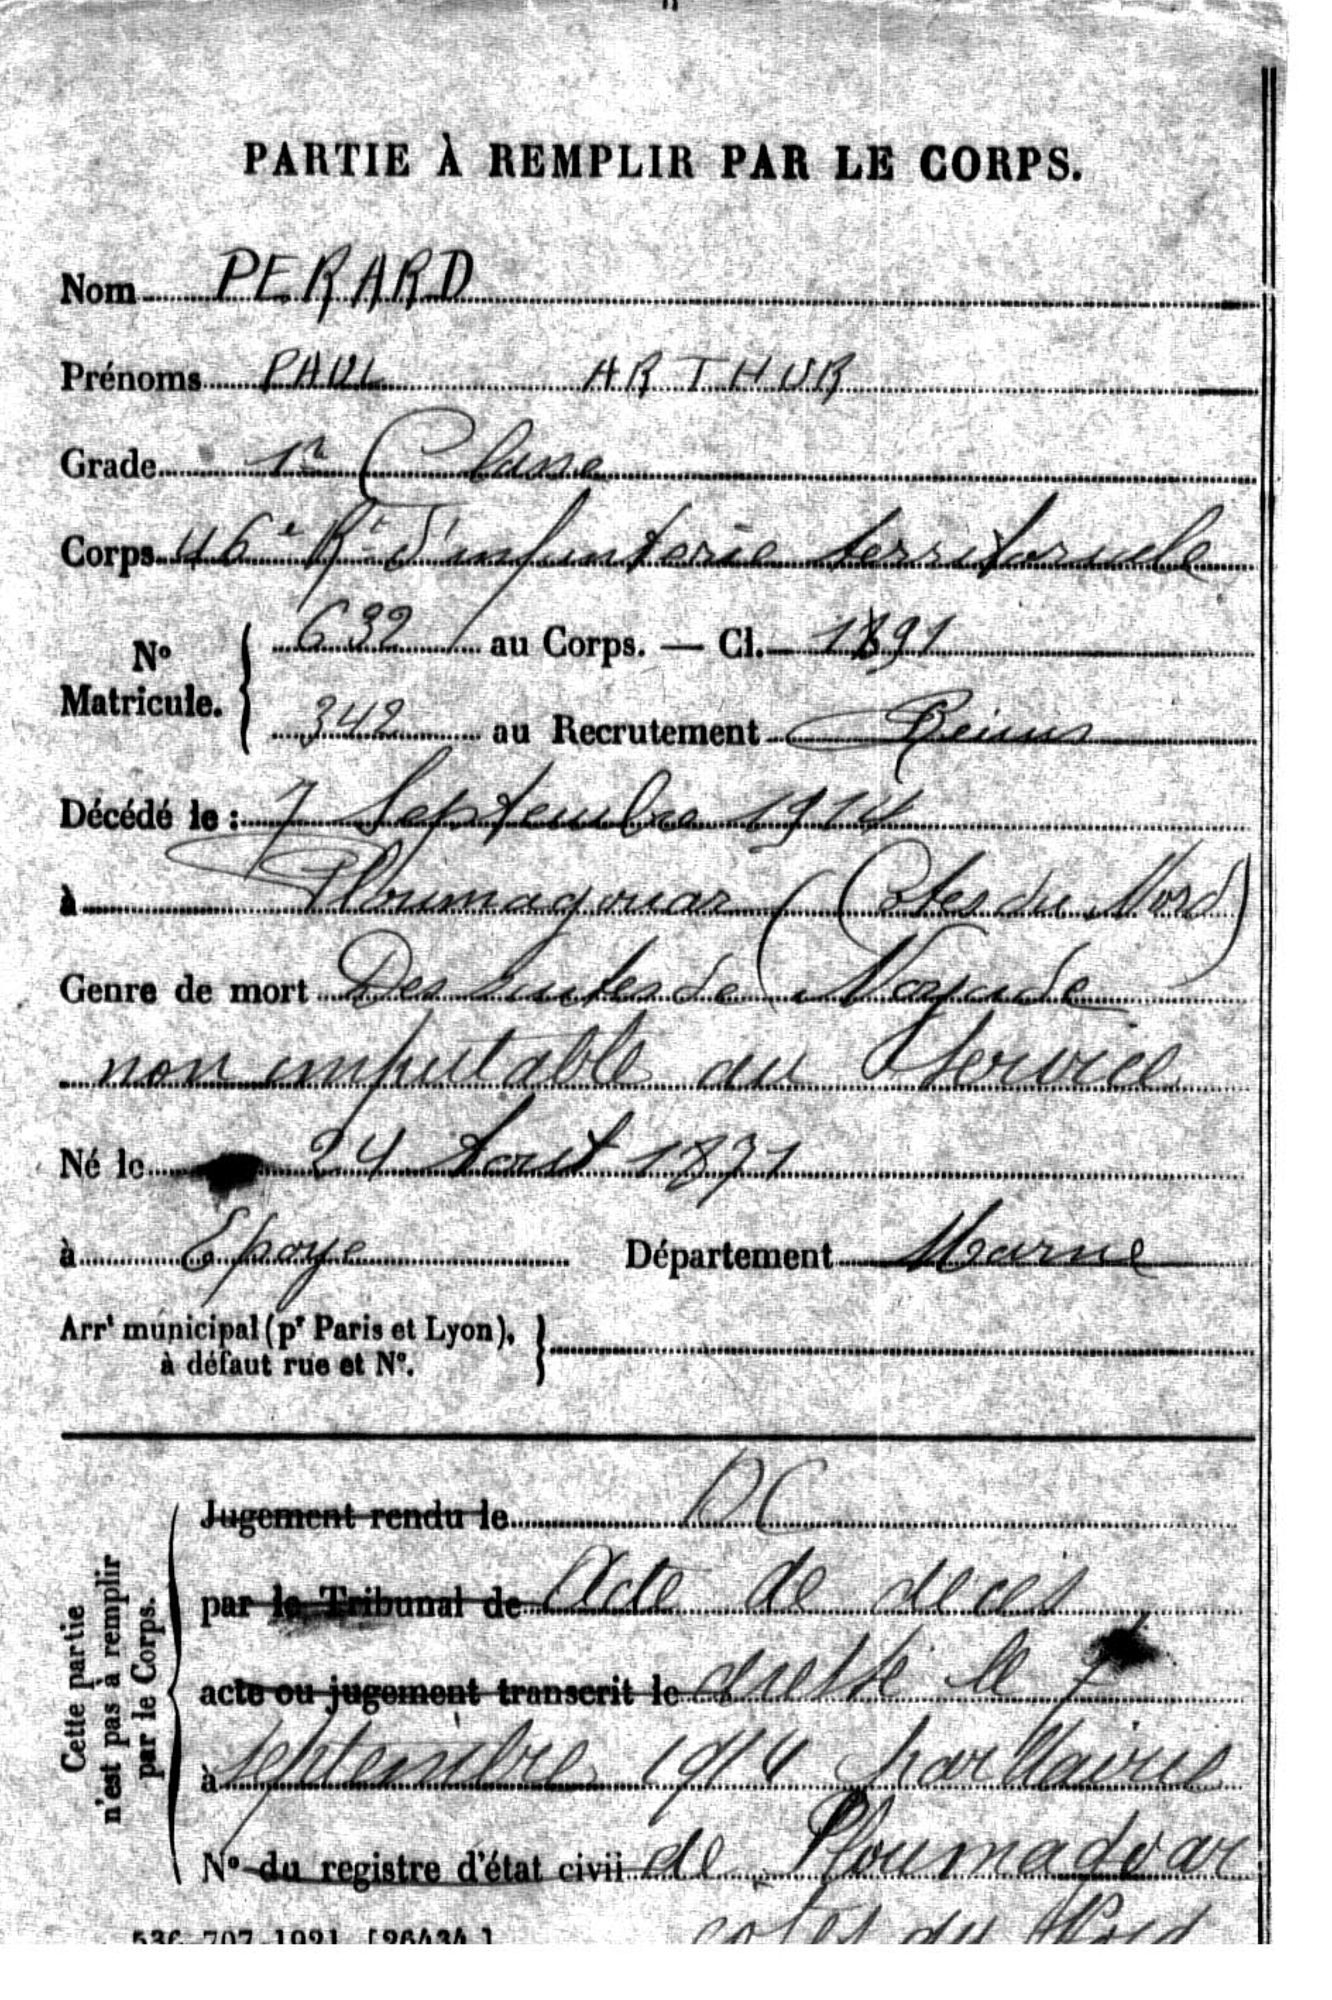 PARTIE À REMPLIR PAR LE CORPS.
Nom PERARD
Prénoms PAUL ARTHUR
Grade 1re Classe
Corps 46e Rt d'infanterie territoriale
No
Matricule.
632 au Corps. — Cl. 1891
342 au Recrutement Reims
Décédé le : 7 Septembre 1914
à Ploumagouar (Côtes du Nord)
Genre de mort Des suites de Noyade
non imputable au Service
Né le 24 Aout 1871
à Epoye Département Marne
Arrt municipal (pr Paris et Lyon),
à défaut rue et No.
Cette partie
n'est pas à remplir
par le Corps.
Jugement rendu le DC
par le Tribunal de Acte de deces
acte ou jugement transcrit le dressé le 7
à septembre 1914 par Mairie
No du registre d'état civil de Ploumadoar
cotes du Nord
536-707-1921. [26434.]